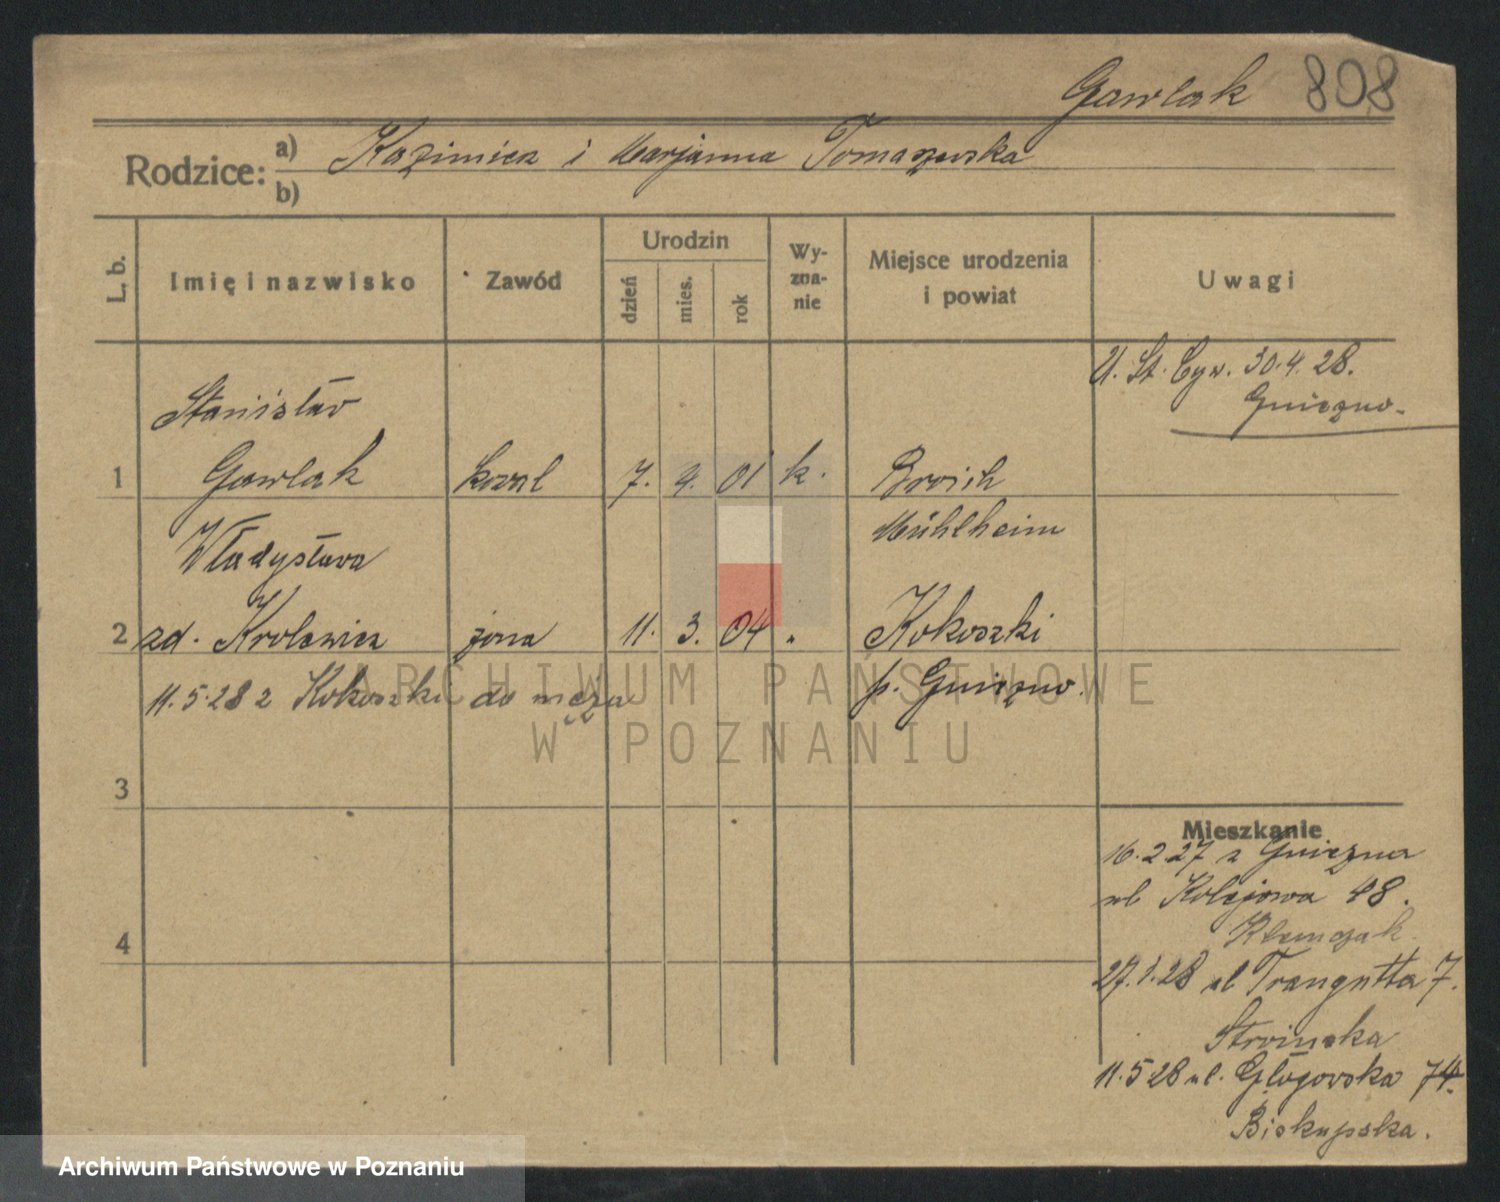 Gawlak 808
Rodzice: a) Kazimierz i Marjanna Tomaszewska
b)
L. b.
Imię i nazwisko
Zawód
Urodzin
dzień
mies.
rok
Wy-
zna-
nie
Miejsce urodzenia
i powiat
Uwagi
U. St. Cyw. 30.4.28.
Gniezno.
Stanisław
1 Gawlak kowal 7. 9. 01 k. Broich
Mühlheim
Władysława
2 zd. Krolewicz żona 11. 3. 04 " Kokoszki
11.5.28 z Kokoszki do męża p. Gniezno.
3
4
Mieszkanie
16.2 27 z Gniezna
ul Kolejowa 48.
Klemczak
27.1.28 ul Traugutta 7.
Stroinska
11.5 28 ul. Głogowska 74.
Biskupska.
ARCHIWUM PAŃSTWOWE
W POZNANIU
Archiwum Państwowe w Poznaniu